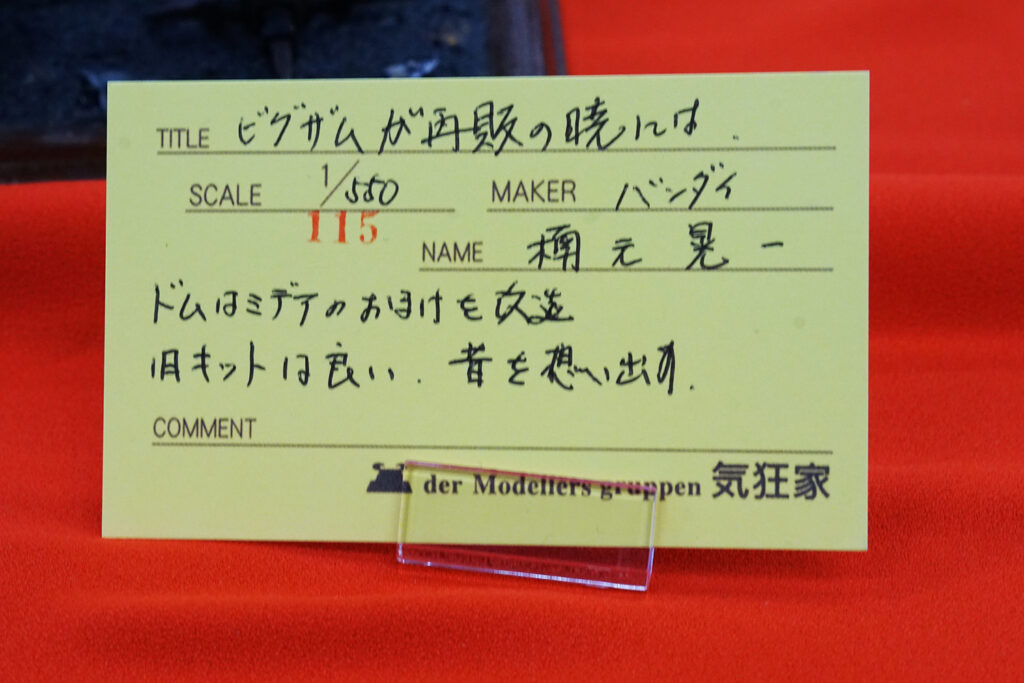 TITLE ビグザムが再販の暁には.
SCALE 1/550 MAKER バンダイ
115
NAME 楠元晃一
ドムはミデアのおまけを改造
旧キットは良い. 昔を想い出す.
COMMENT
der Modellers gruppen 気狂家